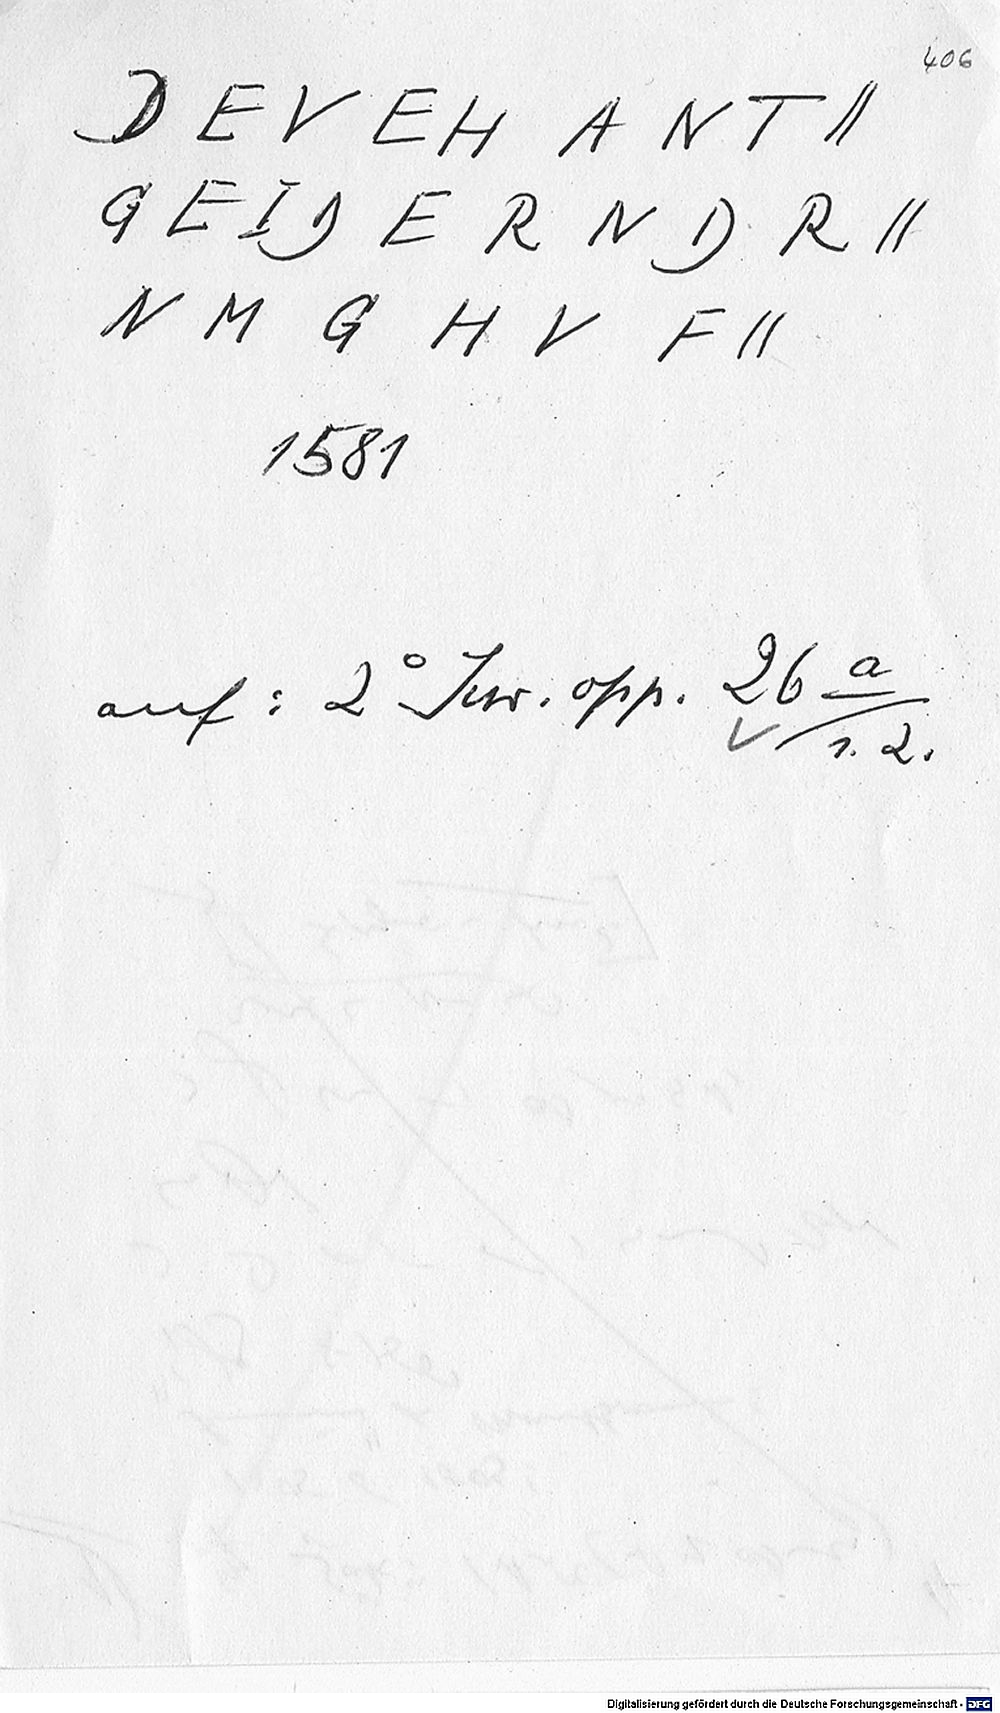 406
D E V E H A N T //
G E I D E R N D R //
N M G H V F //
1581
auf: 2° Jur. opp. 26 a
1.2.
Digitalisierung gefördert durch die Deutsche Forschungsgemeinschaft - DFG